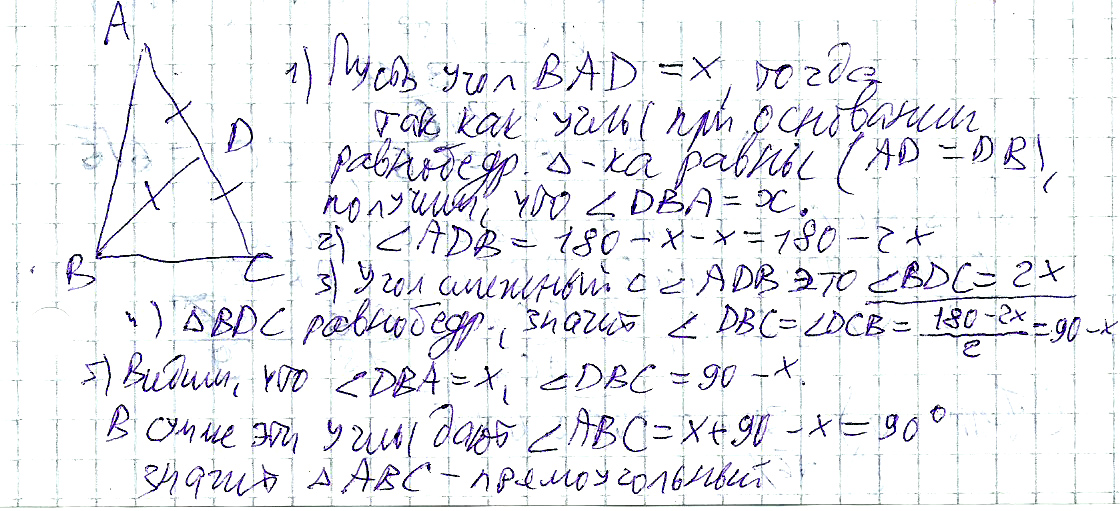 A
D
B
C
1) Пусть угол BAD = x, тогда
так как углы при основании
равнобедр. Δ-ка равны (AD = DB),
получим, что ∠DBA = x.
2) ∠ADB = 180 - x - x = 180 - 2x
3) Угол смежный с ∠ADB это ∠BDC = 2x
4) ΔBDC равнобедр., значит ∠DBC = ∠DCB = (180 - 2x)/2 = 90 - x
5) Видим, что ∠DBA = x, ∠DBC = 90 - x.
В сумме эти углы дают ∠ABC = x + 90 - x = 90°
значит ΔABC - прямоугольный